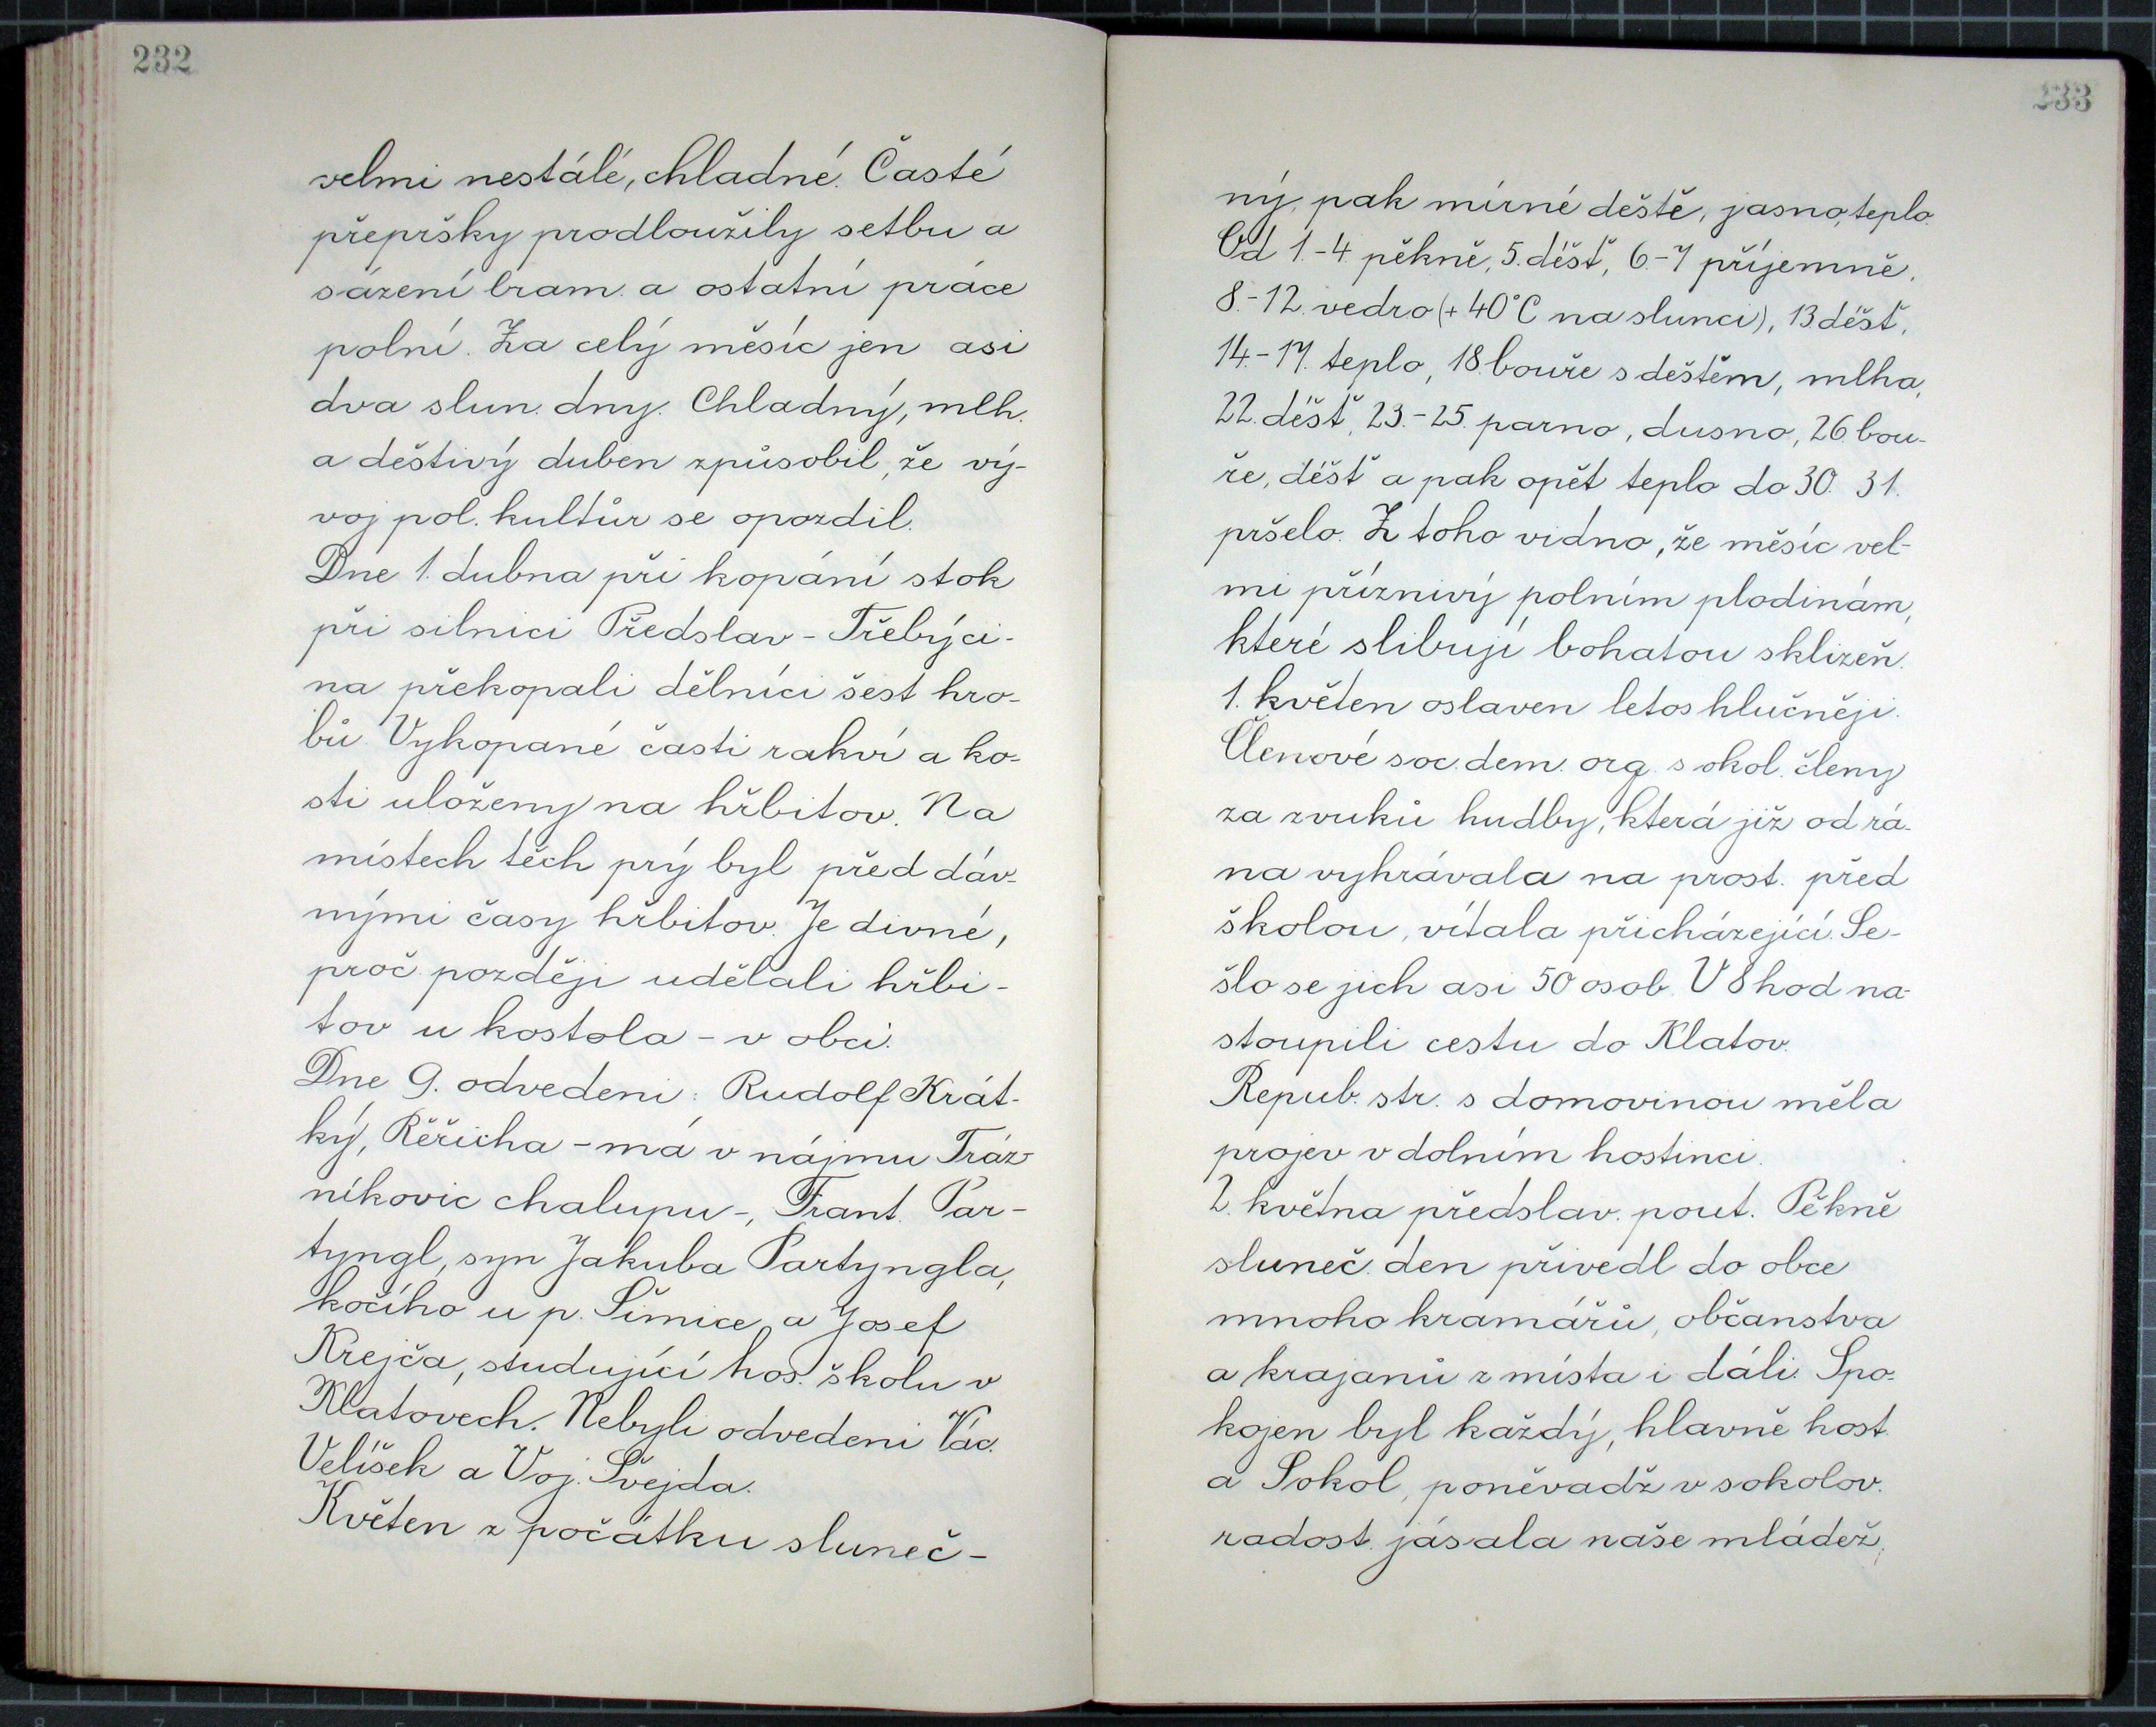 232
velmi nestálé, chladné. Časté
přepršky prodloužily setbu a
sázení bram. a ostatní práce
polní. Za celý měsíc jen asi
dva slun. dny. Chladný, mlh.
a deštivý duben způsobil, že vý-
voj pol. kultůr se opozdil.
Dne 1. dubna při kopání stok
při silnici Předslav - Třebýci-
na překopali dělníci šest hro-
bů. Vykopané časti rakví a ko-
sti uloženy na hřbitov. Na
místech těch prý byl před dáv-
nými časy hřbitov. Je divné,
proč později udělali hřbi-
tov u kostola - v obci.
Dne 9. odvedeni: Rudolf Krát-
ký, Řěřicha - má v nájmu Tráz-
níkovic chalupu -, Frant. Par-
tyngl, syn Jakuba Partyngla,
kočího u p. Šimice a Josef
Krejča, studující hos. školu v
Klatovech. Nebyli odvedeni Vác.
Velíšek a Voj. Švejda.
Květen z počátku sluneč-
233
ný, pak mírné deště, jasno, teplo.
Od 1.-4. pěkně, 5. déšť, 6.-7 příjemně,
8.-12. vedro (+ 40°C na slunci), 13 déšť,
14.-17. teplo, 18. bouře s deštěm, mlha,
22. déšť, 23.-25. parno, dusno, 26. bou-
ře, déšť a pak opět teplo do 30. 31.
pršelo. Z toho vidno, že měsíc vel-
mi příznivý polním plodinám,
které slibují bohatou sklizeň.
1. květen oslaven letos hlučněji.
Členové soc. dem. org. s okol. členy
za zvuků hudby, která již od rá-
na vyhrávala na prost. před
školou, vítala přicházející. Se-
šlo se jich asi 50 osob. V 8 hod na-
stoupili cestu do Klatov.
Repub. str. s domovinou měla
projev v dolním hostinci.
2. května předslav. pout. Pěkně
sluneč. den přivedl do obce
mnoho kramářů, občanstva
a krajanů z místa i dáli. Spo-
kojen byl každý, hlavně host.
a Sokol, poněvadž v sokolov.
radost. jásala naše mládež,